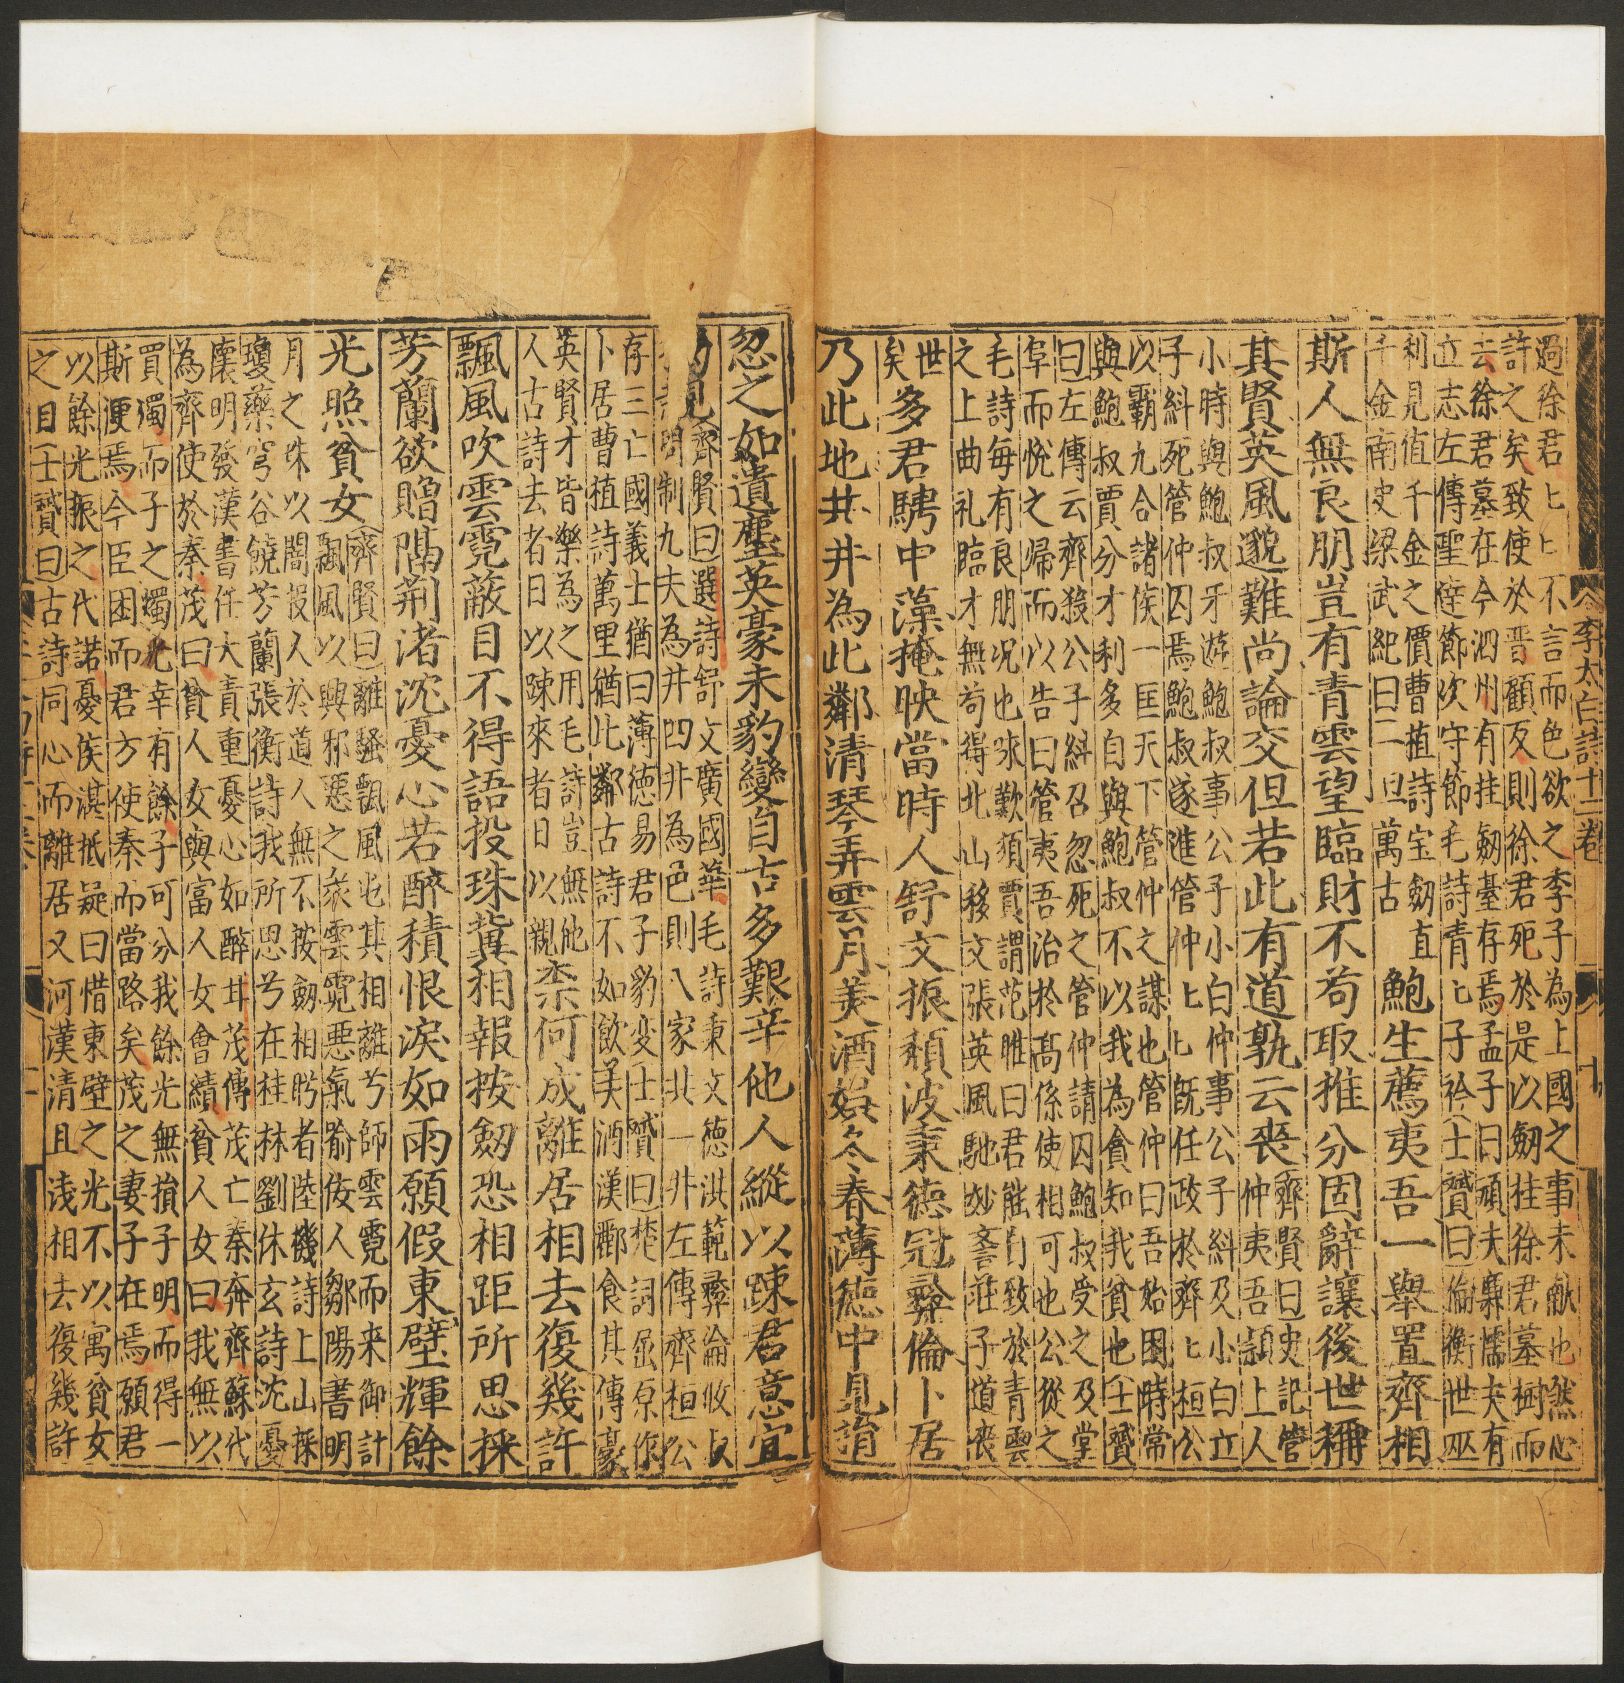 過徐君匕匕不言而色欲之季子為上國之事未献也然心
許之矣致使於晋顧反則徐君死於是以劔挂徐君墓樹而
云徐君墓在今泗州有挂劔臺存焉孟子曰頑夫廉懦夫有
立志左傳聖達節次守節毛詩青匕子衿士贇曰倫衡世巫
利見值千金之價曹植詩宝劔直
千金南史梁武紀曰一旦萬古
鮑生薦夷吾一舉置齊相
斯人無良朋豈有青雲望臨財不苟取推分固辭讓後世稱
其賢英風邈難尚論交但若此有道孰云喪
齊賢曰史記管
仲夷吾潁上人
小時與鮑叔牙遊鮑叔事公子小白仲事公子糾及小白立
子糾死管仲囚焉鮑叔遂進管仲匕既任政於齊匕桓公
以霸九合諸侯一匡天下管仲之謀也管仲曰吾始困時常
與鮑叔賈分才利多自與鮑叔不以我為貪知我貧也士贇
曰左傳云齊殺公子糾召忽死之管仲請囚鮑叔受之及堂
阜而悅之歸而以告曰管夷吾治於高係使相可也公從之
毛詩每有良朋况也求歎須賈謂范睢曰君能自致於青雲
之上曲礼臨才無苟得北山移文張英風馳妙譽莊子道喪
世
矣
多君騁中藻掩映當時人舒文振頽波秉德冠彝倫卜居
乃此地共井為此鄰清琴弄雲月美酒娱冬春薄德中見捐
忽之如遺塵英豪未豹變自古多艱辛他人縱以踈君意宜
齊賢曰選詩舒文廣國華毛詩秉文德洪範彝倫攸
制九夫為井四井為邑則八家共一井左傳齊桓公
存三亡國義士猶曰薄德易君子豹变士贇曰楚詞屈原作
卜居曹植詩萬里猶比鄰古詩不如飲美酒漢酈食其傳豪
英賢才皆樂為之用毛詩豈無他
人古詩去者日以踈來者日以親
柰何成離居相去復幾許
飄風吹雲霓蔽目不得語投珠冀相報按劔恐相距所思採
芳蘭欲贈隔荆渚沈憂心若醉積恨淚如雨願假東壁輝餘
光照貧女
齊賢曰離騷飄風屯其相離兮帥雲霓而来御計
飄風以興邪悪之衆雲霓悪氣喻佞人鄒陽書明
月之珠以闇投人於道人無不按劔相眄者陸機詩上山採
瓊藥穹谷饒芳蘭張衡詩我所思兮在桂林劉休玄詩沈憂
懷明發漢書任大責重憂心如醉甘茂傳茂亡秦奔齊蘇代
為齊使於秦茂曰貧人女與富人女會績貧人女曰我無以
買燭而子之燭光幸有餘子可分我餘光無損子明而得一
斯便焉今臣困而君方使秦而當路矣茂之妻子在焉願君
以餘光振之代諾憂侯湛抵疑曰惜東壁之光不以寓貧女
之目士贇曰古詩同心而離居又河漢清且浅相去復幾許
李太白詩十二卷
十